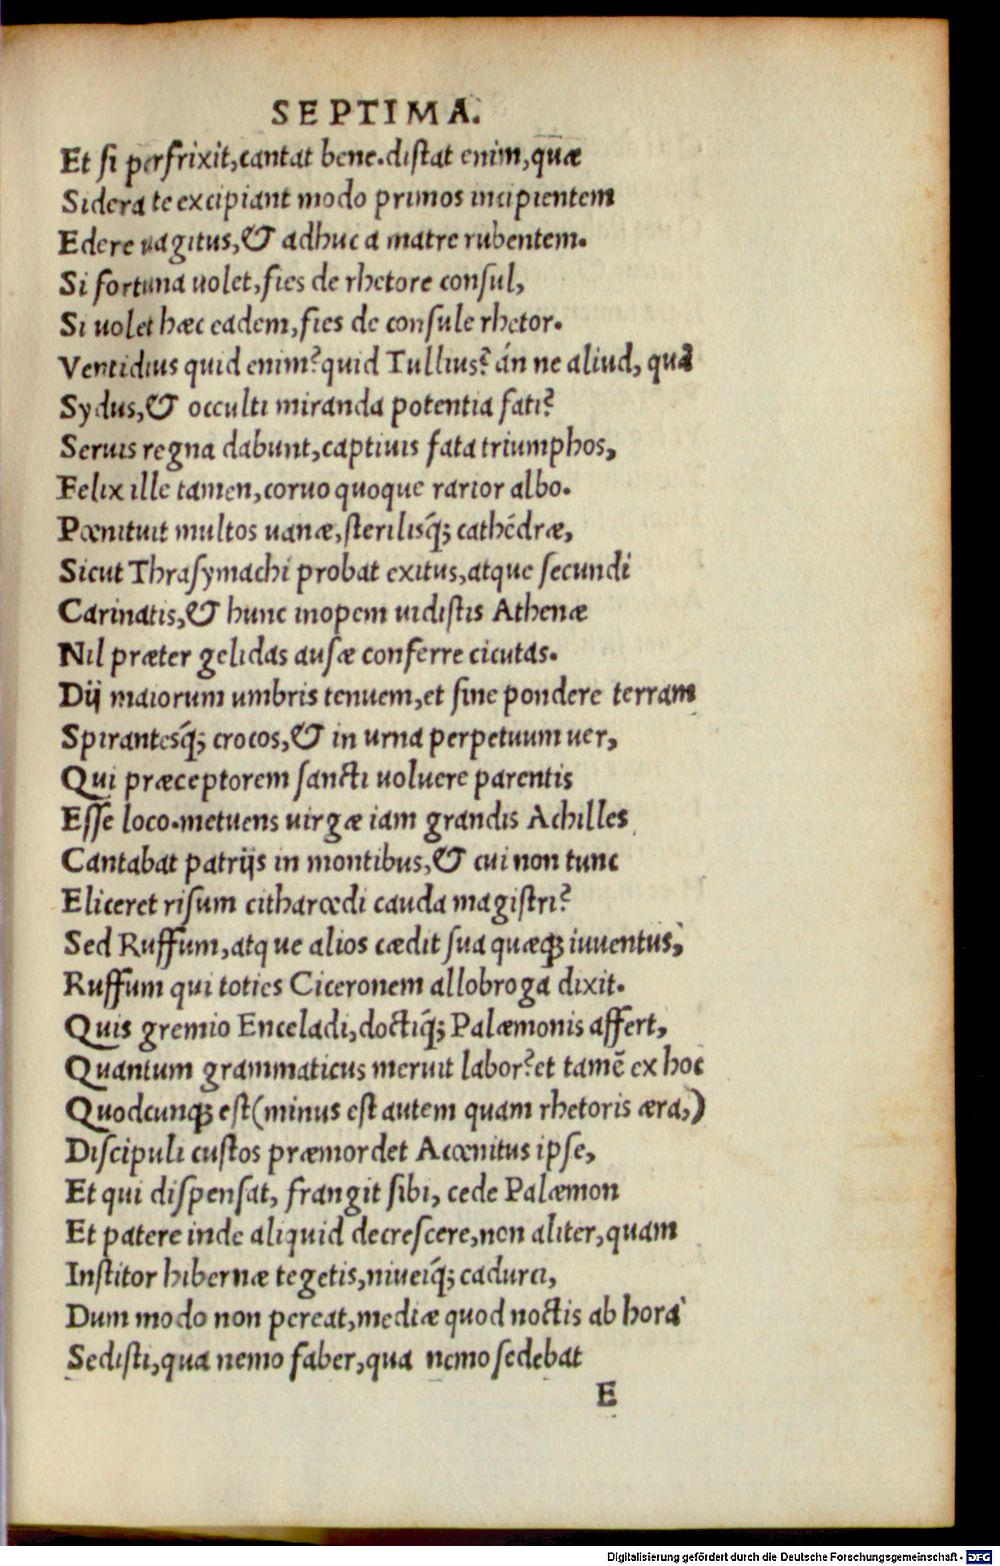 SEPTIMA.
Et ſi perfrixit,cantat bene.diſtat enim,quæ
Sidera te excipiant modo primos incipientem
Edere uagitus,& adhuc a matre rubentem.
Si fortuna uolet,fies de rhetore conſul,
Si uolet hæc eadem,fies de conſule rhetor.
Ventidius quid enim?quid Tullius?án ne aliud, quã
Sydus,& occulti miranda potentia fati?
Seruis regna dabunt,captiuis fata triumphos,
Felix ille tamen,coruo quoque rarior albo.
Pœnituit multos uanæ,ſterilisq́; cathédræ,
Sicut Thraſymachi probat exitus,atque ſecundi
Carinatis,& hunc inopem uidiſtis Athenæ
Nil præter gelidas auſæ conferre cicutas.
Dij maiorum umbris tenuem,et ſine pondere terram
Spirantesq́; crocos,& in urna perpetuum uer,
Qui præceptorem ſancti uoluere parentis
Eſſe loco.metuens uirgæ iam grandis Achilles
Cantabat patrijs in montibus,& cui non tunc
Eliceret riſum citharœdi cauda magiſtri?
Sed Ruffum,atque alios cædit ſua quæq; iuuentus,
Ruffum qui toties Ciceronem allobroga dixit.
Quis gremio Enceladi,doctiq́; Palæmonis affert,
Quantum grammaticus meruit labor?et tamē ex hoc
Quodcunq; eſt(minus eſt autem quam rhetoris æra,)
Diſcipuli cuſtos præmordet Acœnitus ipſe,
Et qui diſpenſat, frangit ſibi, cede Palæmon
Et patere inde aliquid decreſcere,non aliter,quam
Inſtitor hibernæ tegetis,niueiq́; cadurci,
Dum modo non pereat,mediæ quod noctis ab hora
Sediſti,qua nemo faber,qua nemo ſedebat
E
Digitalisierung gefördert durch die Deutsche Forschungsgemeinschaft - DFG